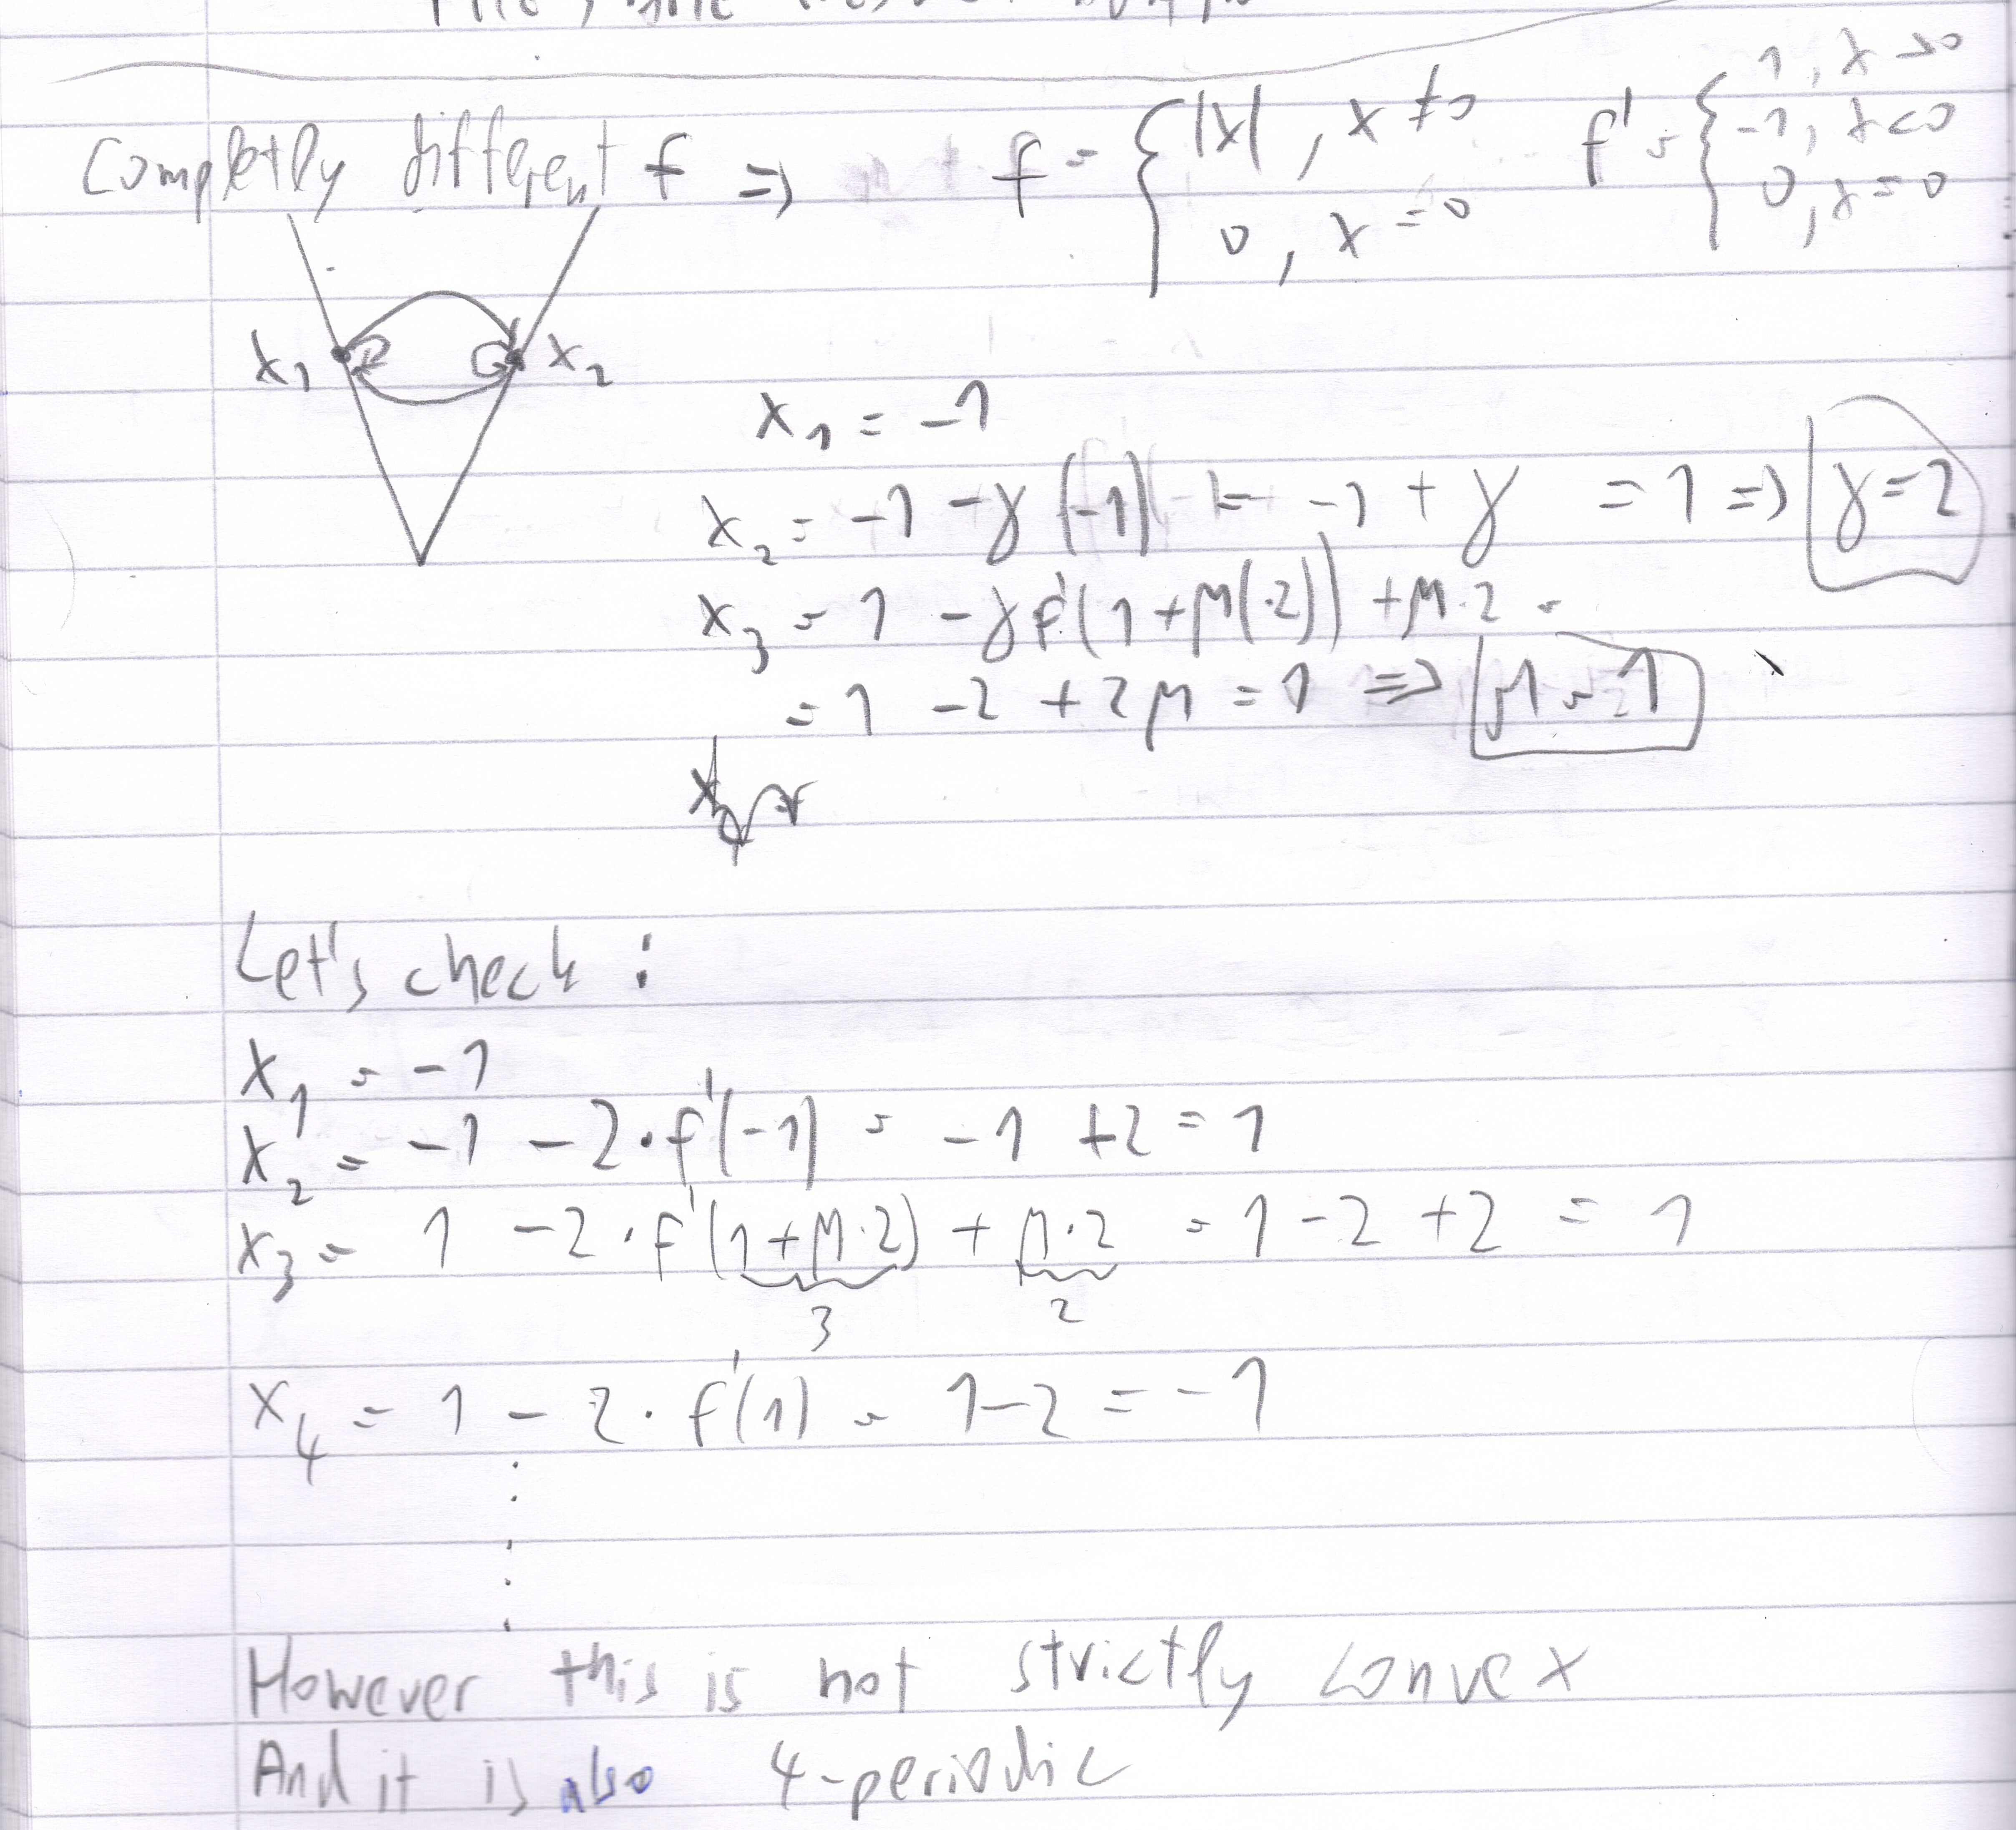 Completly different f => f = { |x| , x ≠ 0
0 , x = 0
f' = { 1 , x > 0
-1 , x < 0
0 , x = 0
x₁ x₂
x₁ = -1
x₂ = -1 - γ (-1) = -1 + γ = 1 => γ = 2
x₃ = 1 - γ f'(1 + μ(·2)) + μ·2 =
= 1 - 2 + 2μ = 1 => μ = 1
Let's check :
x₁ = -1
x₂ = -1 - 2·f'(-1) = -1 + 2 = 1
x₃ = 1 - 2·f'(1 + μ·2) + μ·2 = 1 - 2 + 2 = 1
3 2
x₄ = 1 - 2·f'(1) = 1 - 2 = -1
However this is not strictly convex
And it is also 4-periodic